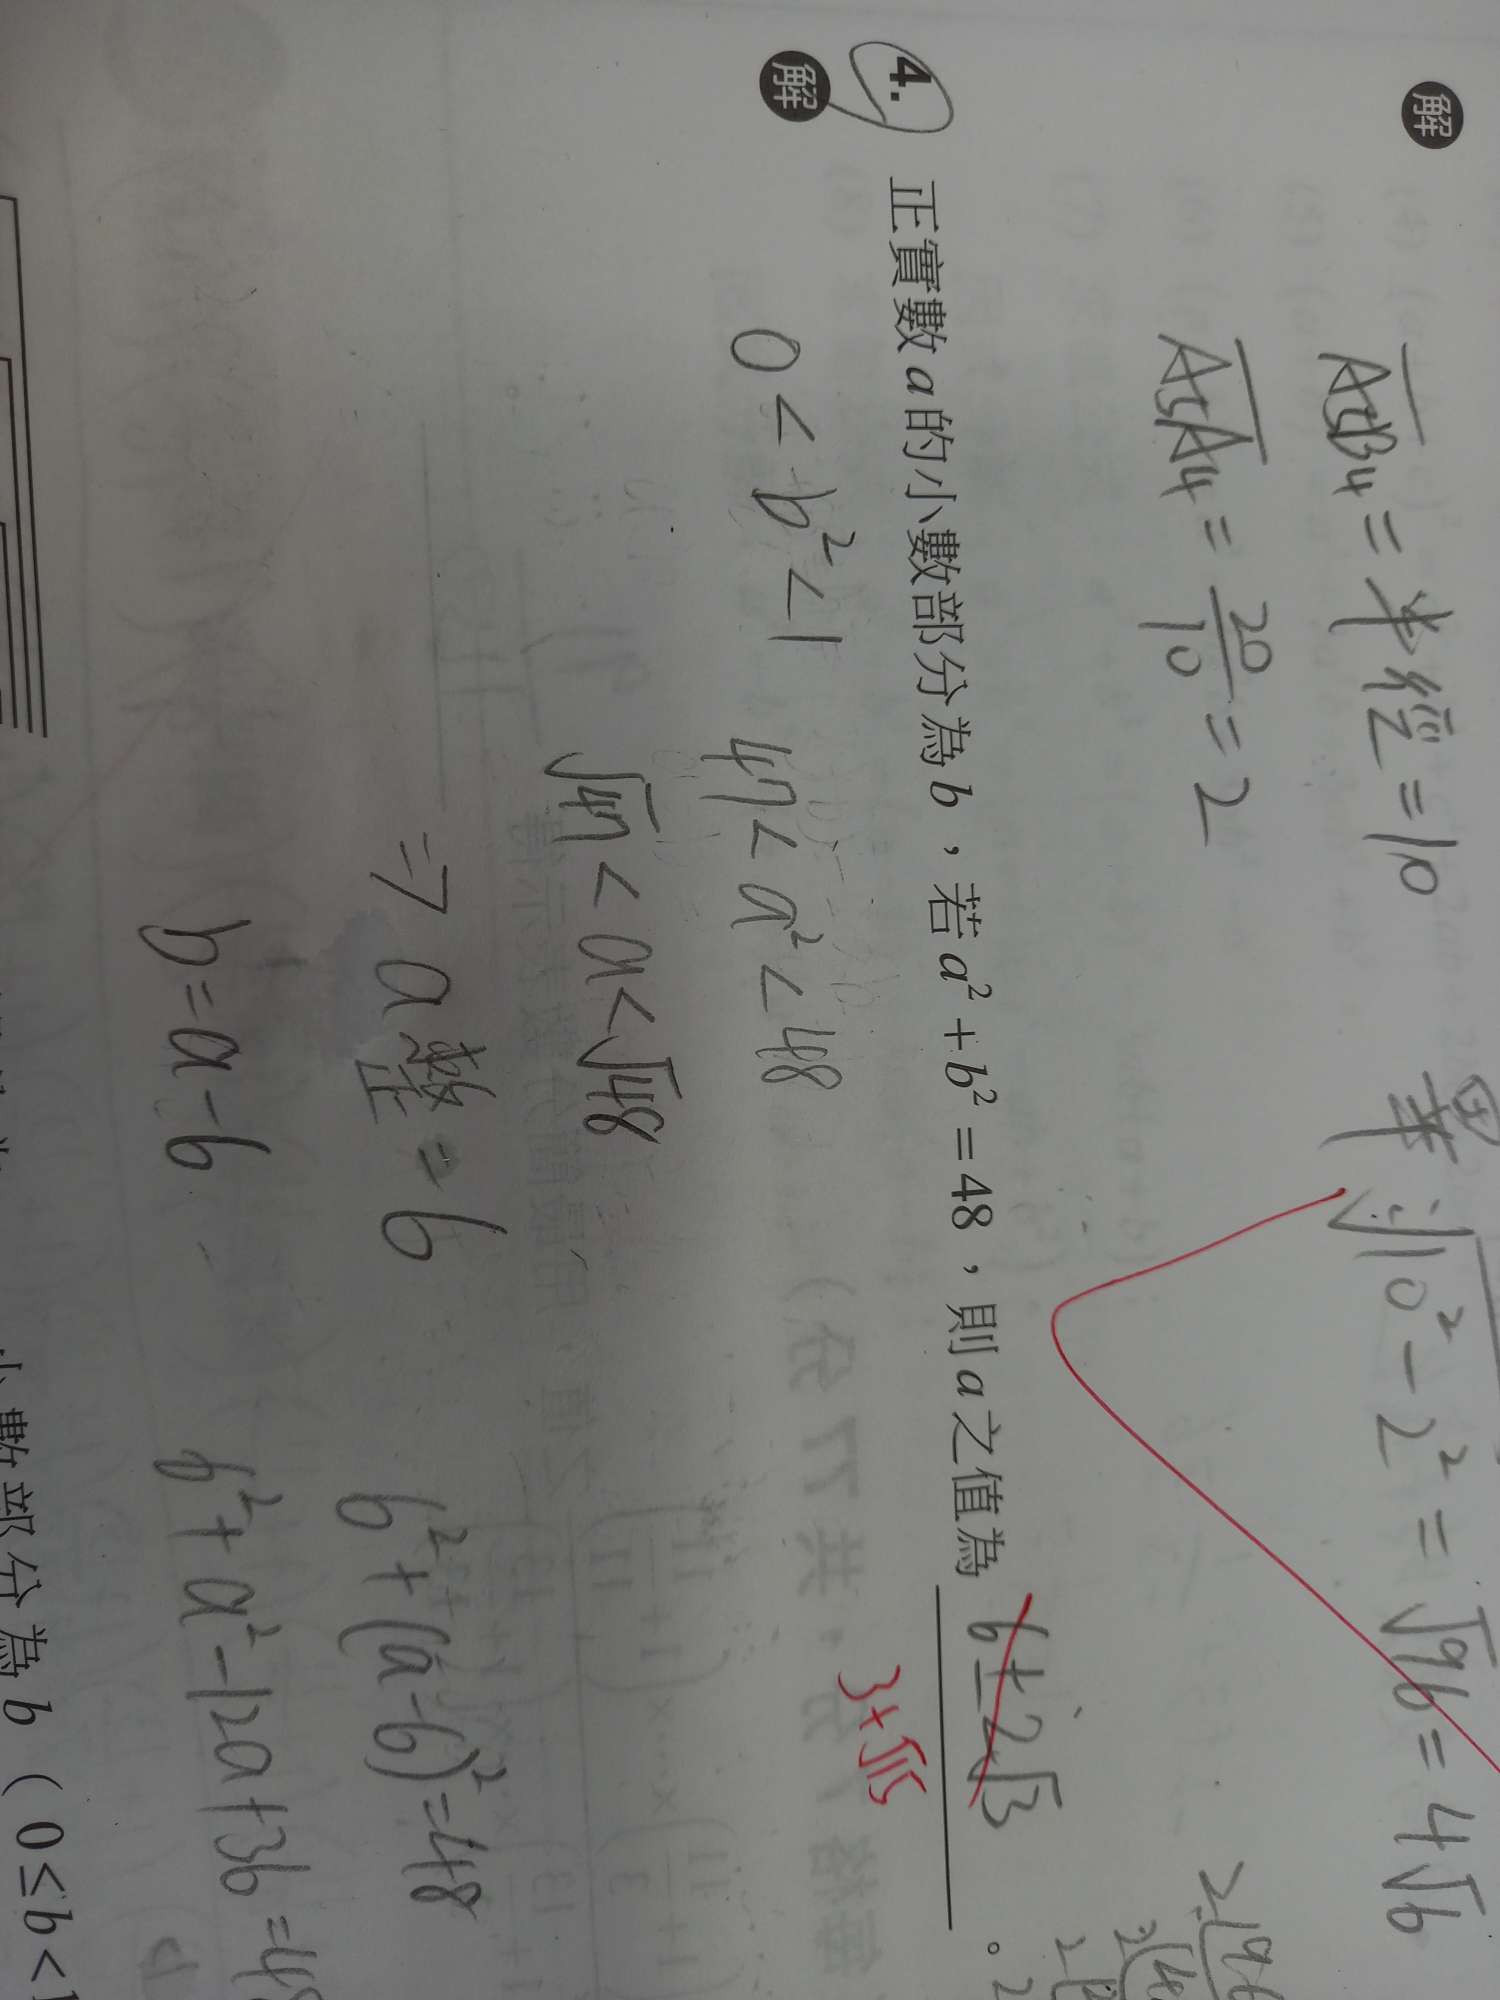 解
A₅B₄ = 半徑 = 10
√10² - 2² = √96 = 4√6
A₅A₄ = 20/10 = 2
4. 正實數a的小數部分為b，若a²+b²=48，則a之值為 6±2√3 。
3+√15
解
0 < b² < 1
47 < a² < 48
√47 < a < √48
⇒ a整 = 6
b = a - 6
b² + (a-6)² = 48
b² + a² - 12a + 36 = 48
小數部分為b（0≤b<1